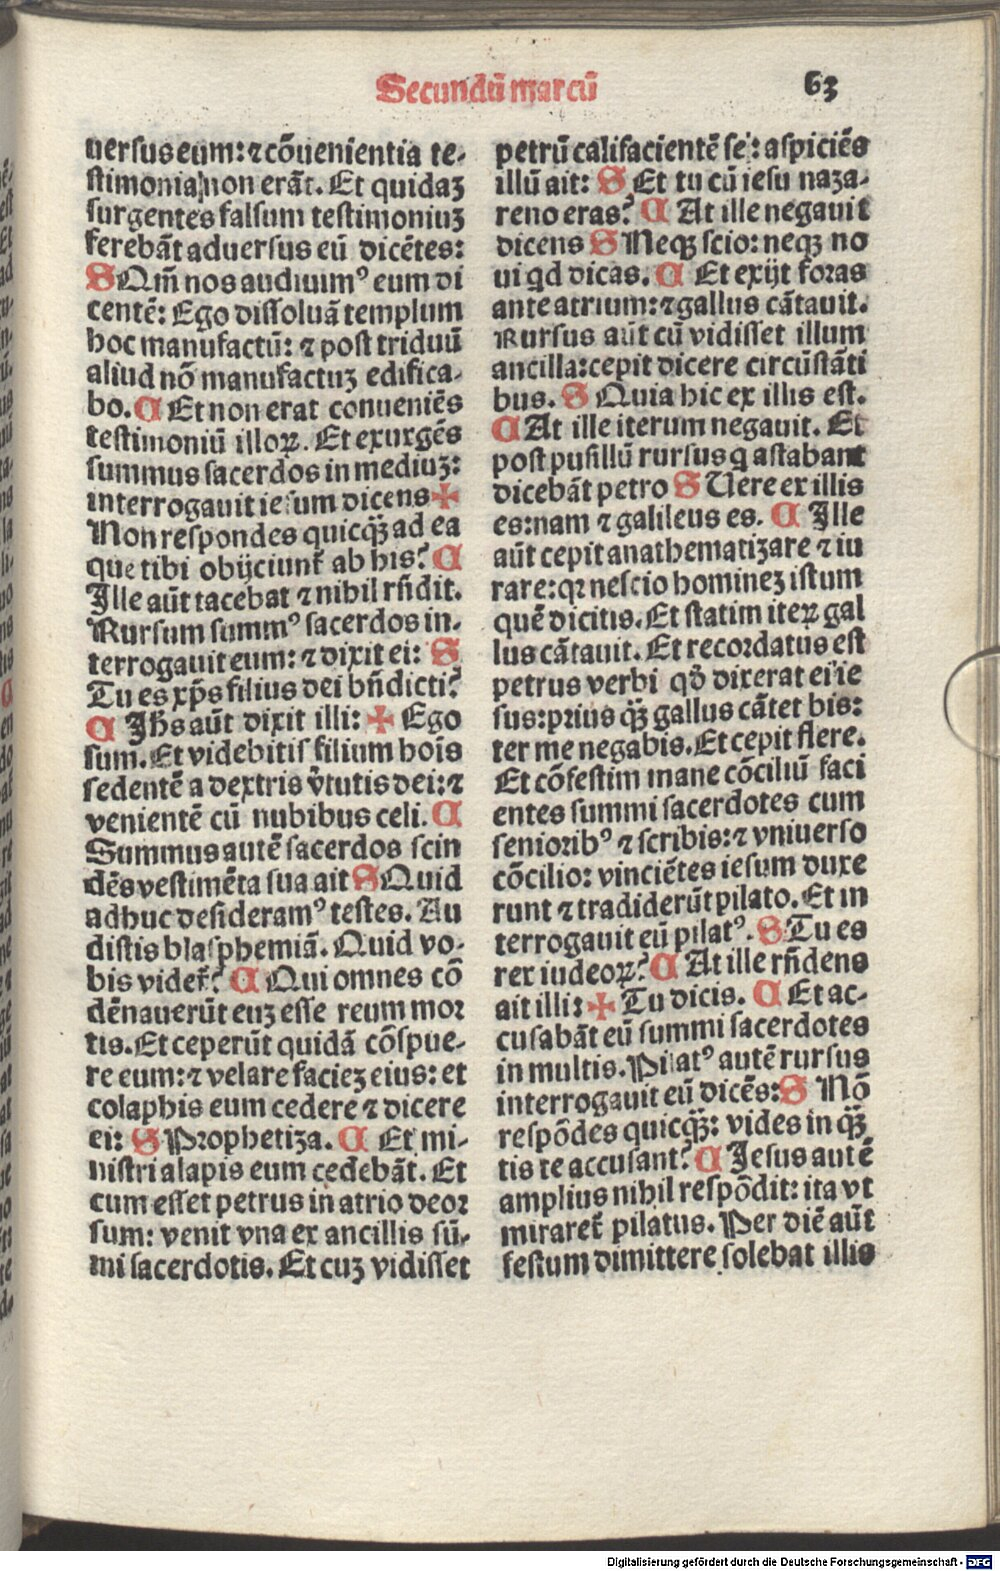 Secundū marcū 63
uersus eum: ⁊ cōuenientia te-
stimonia non erāt. Et quidaȝ
surgentes falsum testimoniuȝ
ferebāt aduersus eū dicētes:
S Qm̄ nos audiuimꝰ eum di
centē: Ego dissoluā templum
hoc manufactū: ⁊ post triduū
aliud nō manufactuȝ edifica-
bo. C Et non erat conueniēs
testimoniū illoꝝ. Et exurgēs
summus sacerdos in mediuȝ:
interrogauit iesum dicens ✠
Non respondes quicqȝ̄ ad ea
que tibi obijciunt̄ ab his? C
Ille aūt tacebat ⁊ nihil rn̄dit.
Rursum summꝰ sacerdos in-
terrogauit eum: ⁊ dixit ei: S
Tu es xp̄s filius dei bn̄dicti?
C Jh̄s aūt dixit illi: ✠ Ego
sum. Et videbitis filium hoīs
sedentē a dextris v̄tutis dei: ⁊
venientē cū nubibus celi. C
Summus autē sacerdos scin
dēs vestimēta sua ait S Quid
adhuc desideramꝰ testes. Au
distis blasphemiā. Quid vo-
bis videt̄? C Qui omnes cō
dēnauerūt euȝ esse reum mor
tis. Et ceperūt quidā cōspue-
re eum: ⁊ velare facieȝ eius: et
colaphis eum cedere ⁊ dicere
ei: S Prophetiza. C Et mi-
nistri alapis eum cedebāt. Et
cum esset petrus in atrio deor
sum: venit vna ex ancillis sū-
mi sacerdotis. Et cuȝ vidisset
petrū califacientē se: aspiciēs
illū ait: S Et tu cū iesu naza-
reno eras? C At ille negauit
dicens S Neqȝ scio: neqȝ no
ui qd dicas. C Et exijt foras
ante atrium: ⁊ gallus cātauit.
Rursus aūt cū vidisset illum
ancilla: cepit dicere circūstāti
bus. S Quia hic ex illis est.
C At ille iterum negauit. Et
post pusillū rursus q astabant
dicebāt petro S Uere ex illis
es: nam ⁊ galileus es. C Ille
aūt cepit anathematizare ⁊ iu
rare: qꝛ nescio homineȝ istum
quē dicitis. Et statim iteꝝ gal
lus cātauit. Et recordatus est
petrus verbi qđ dixerat ei ie
sus: prius qȝ̄ gallus cātet bis:
ter me negabis. Et cepit flere.
Et cōfestim mane cōciliū faci
entes summi sacerdotes cum
senioribꝰ ⁊ scribis: ⁊ vniuerso
cōcilio: vinciētes iesum duxe
runt ⁊ tradiderūt pilato. Et in
terrogauit eū pilatꝰ. S Tu es
rex iudeoꝝ? C At ille rn̄dens
ait illi: ✠ Tu dicis. C Et ac-
cusabāt eū summi sacerdotes
in multis. Pilatꝰ autē rursus
interrogauit eū dicēs: S Nō
respōdes quicqȝ̄: vides in qȝ̄
tis te accusant? C Jesus autē
amplius nihil respōdit: ita vt
miraret̄ pilatus. Per diē aūt
festum dimittere solebat illis
Digitalisierung gefördert durch die Deutsche Forschungsgemeinschaft - DFG